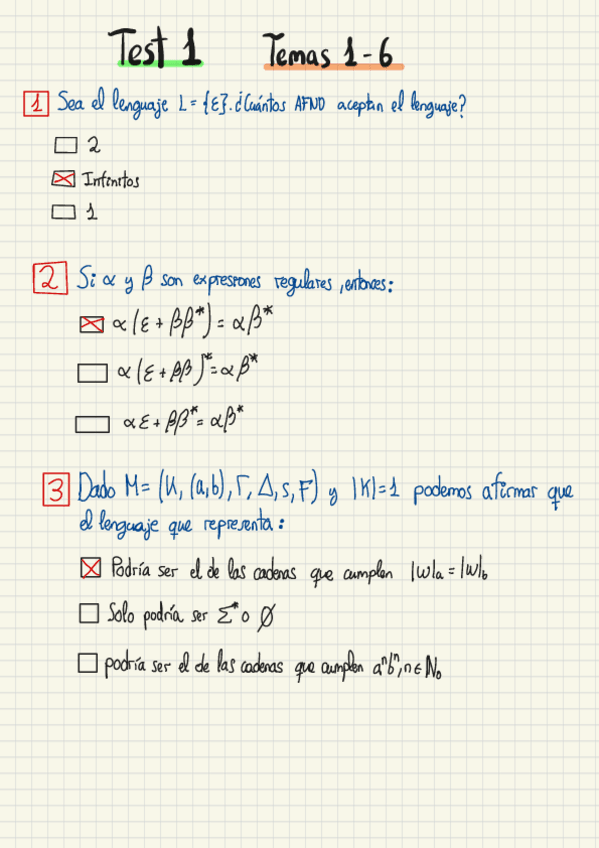 Test 1 Temas 1-6
1 Sea el lenguaje L = {ε}. ¿Cuántos AFND aceptan el lenguaje?
2
Infinitos
1
2 Si α y β son expresiones regulares, entonces:
α(ε + ββ*) = αβ*
α(ε + ββ)* = αβ*
αε + ββ* = αβ*
3 Dado M = (K, (a,b), Γ, Δ, s, F) y |K|=1 podemos afirmar que
el lenguaje que representa:
Podría ser el de las cadenas que cumplen |w|a = |w|b
Solo podría ser Σ* o ∅
podría ser el de las cadenas que cumplen aⁿbⁿ, n ∈ N₀